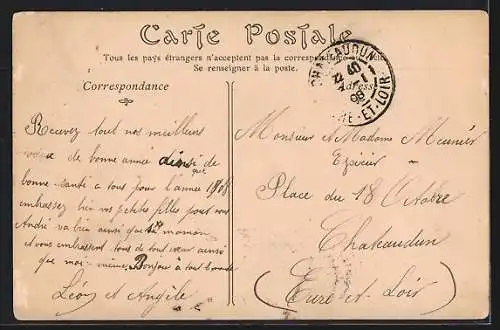 Carte Postale
Tous les pays étrangers n'acceptent pas la correspondance
Se renseigner à la poste.
Correspondance
Adresse
CHATEAUDUN
EURE-ET-LOIR
Recevez tout nos meilleurs
vœux de bonne année ainsi que
bonne santé a tous pour l'année 1908
embrassez bien vos petites filles pour nous
André va bien ainsi que sa maman
et vous embrassent tous de tout cœur ainsi
que moi-même. Bonjour à tout le monde
Léon et Angèle
Monsieur et Madame Meunier
Epicier
Place du 18 Octobre
Chateaudun
(Eure et Loir)